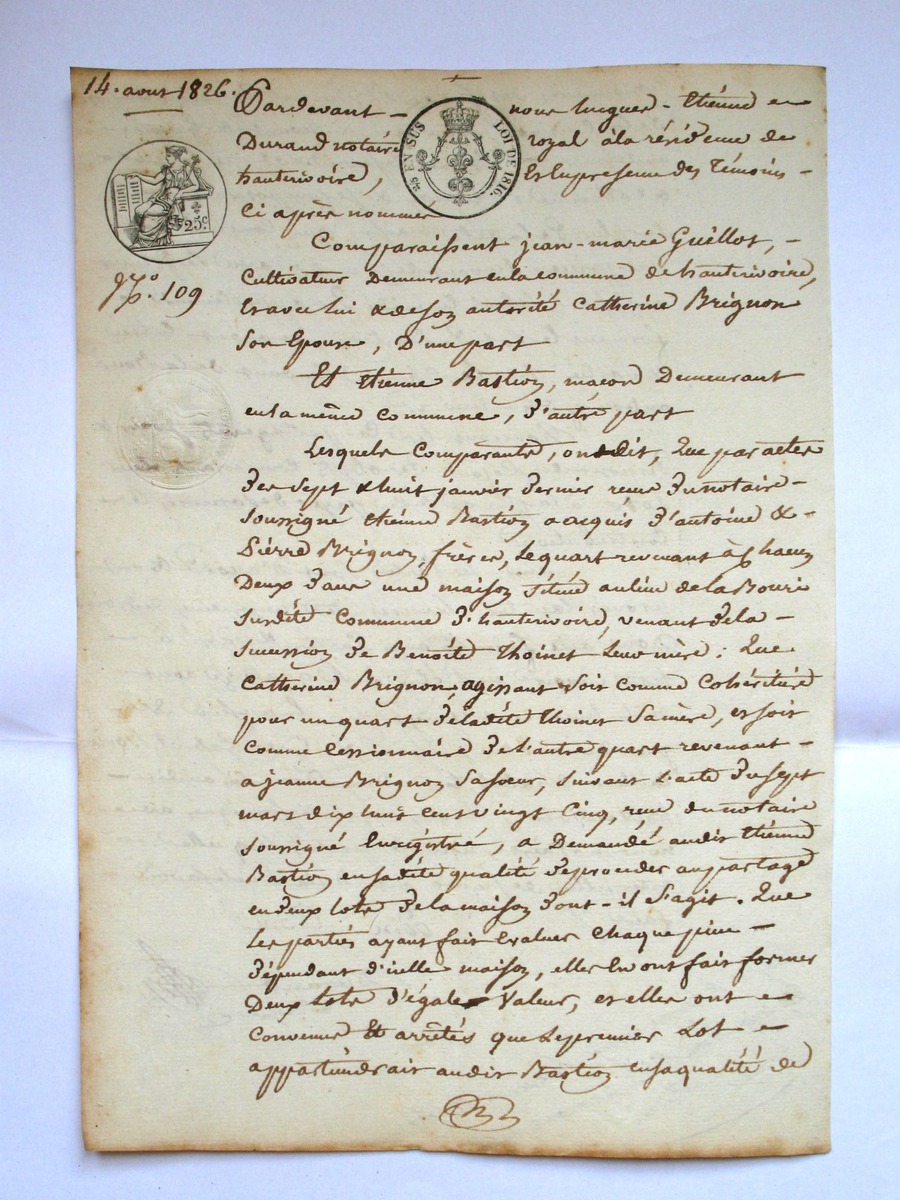 14. aout 1826.
Pardevant - nous hugues - Etiénne
Durand notaire royal à la résidence de
hauterivoire, Et en presence des Témoins -
Ci après nommés
EN SUS LOI DE 1816.
25c.
N.º 109
Comparaissent jean-marie Guillot, -
Cultivateur Demeurant en la commune de hauterivoire,
Et avec lui & de son autorité Catherine Brignon
Son Epouse, D'une part
Et Etiénne Bastion, maçon Demeurant
en la même Commune, d'autre part
Lesquels Comparants, ont dit, Que par actes
des Sept & huit janvier dernier recus du notaire -
soussigné Etiénne Bastion a acquis d'antoine &
Piérre Brignon, frères, le quart revenant à Chacun
Deux dans une maison située au lieu de la Bouri
Susdite Commune d'hauterivoire, venant de la -
Succession de Benoîte Thoinet leur mère ; Que
Catherine Brignon, agissant soit comme Cohéritière
pour un quart de ladite Thoinet Sa mère, et soit
Comme Cessionnaire de l'autre quart revenant -
a jeanne Brignon Sa soeur, suivant l'acte du sept
mars dix huit cent vingt Cinq, recu du notaire
soussigné Enregistré, a Demandé audit Etiénne
Bastion en sadite qualité de proceder au partage
en deux lots de la maison dont - il S'agit. Que
les parties ayant fait Evaluer Chaque piéce -
dépendant d'icelle maison, elles En ont fait former
Deux lots d'égale Valeur, et elles ont
Convenus Et arrêtés que le premier Lot
appartiendrait audit Bastion en sa qualité de